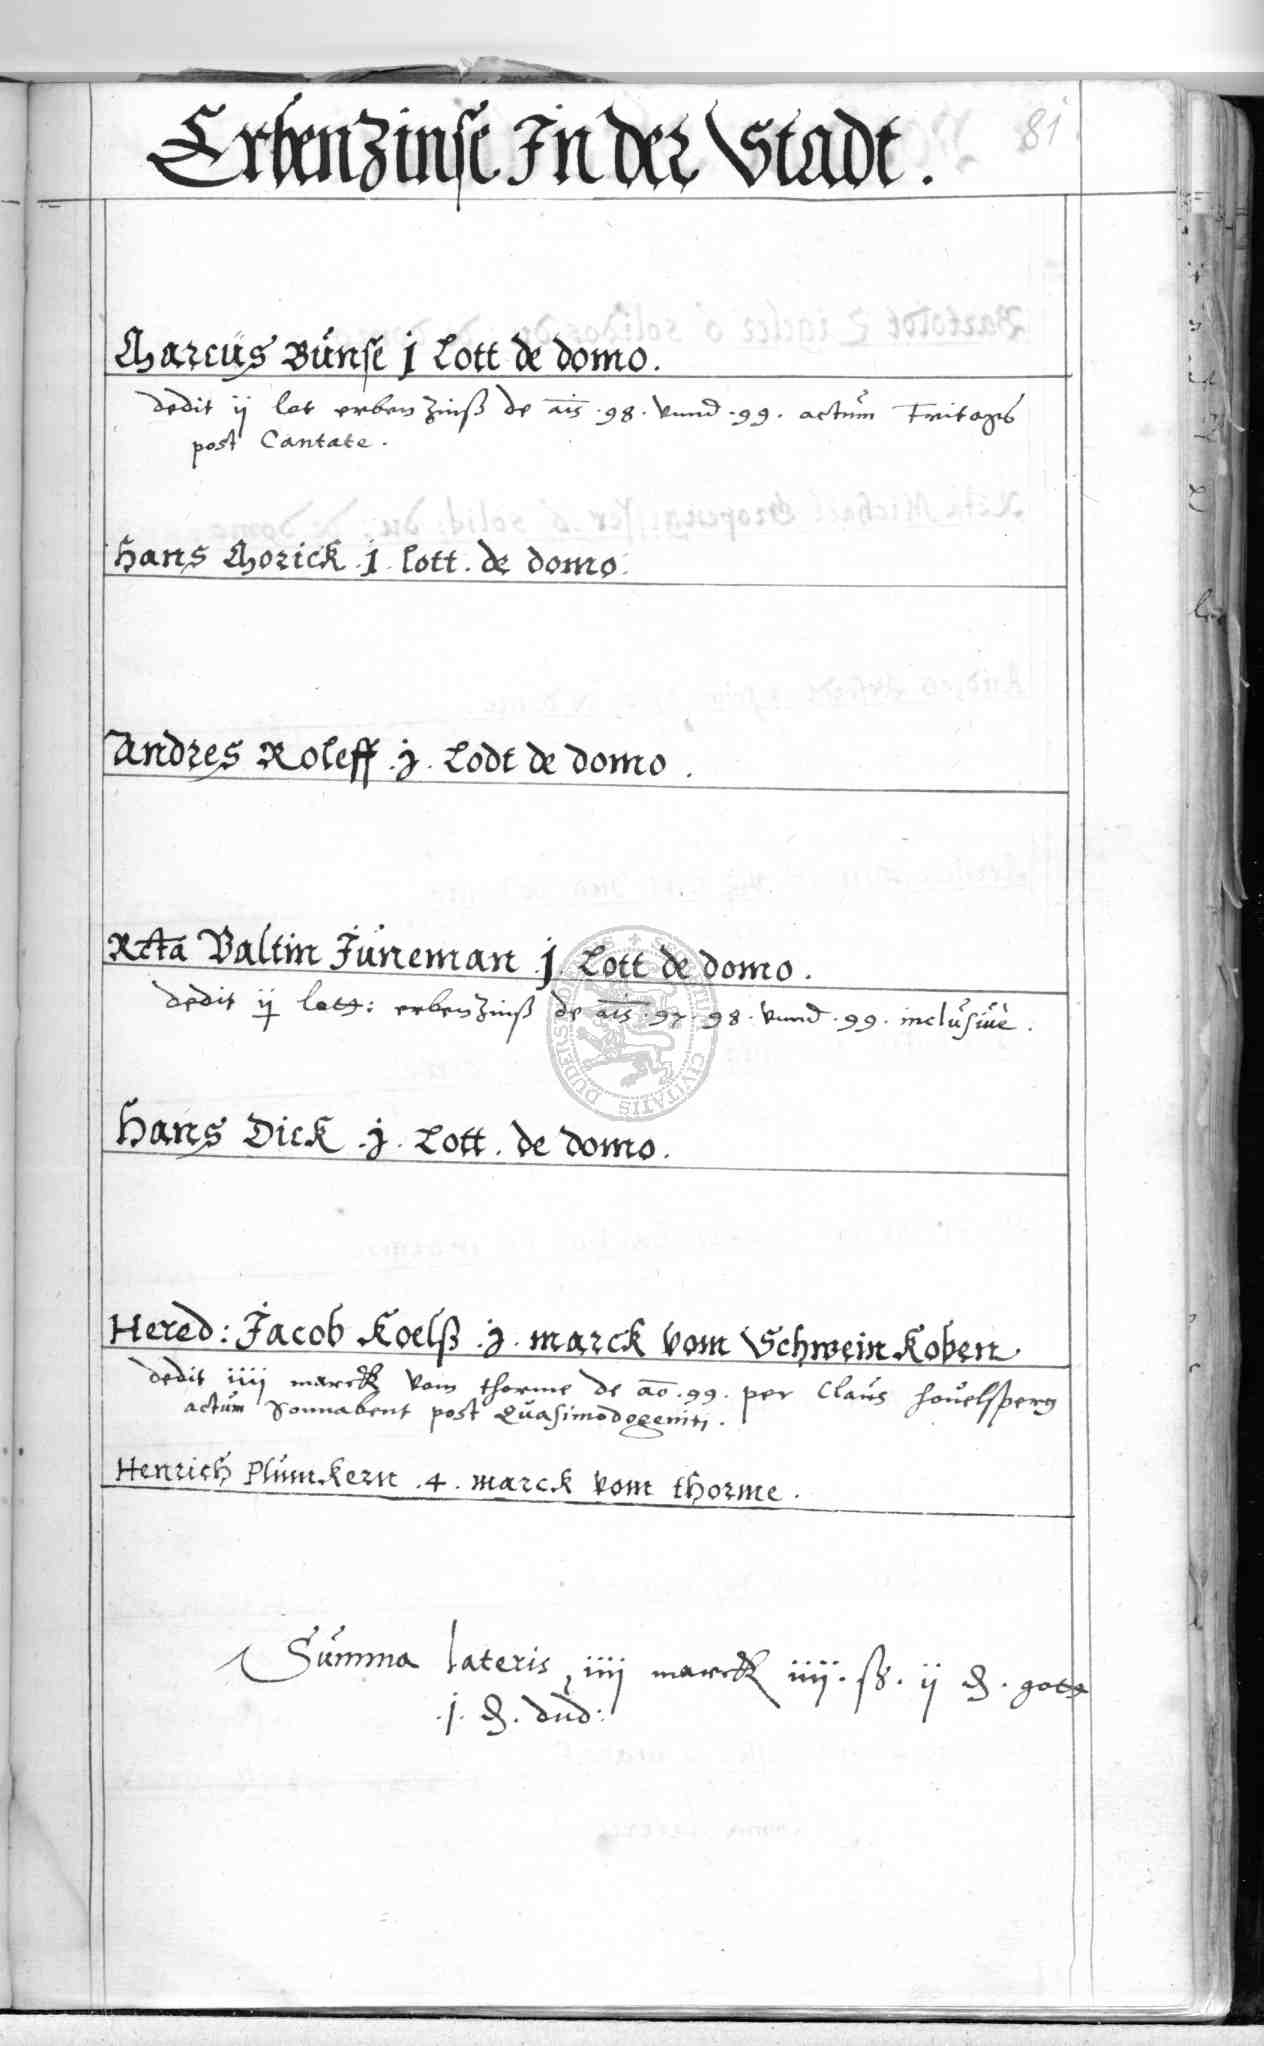 Erbenzinse In der Stadt.
81
Marcus Bunse j Lott de domo.
dedit ij lot erbenzinß de ais .98. vnnd .99. actum Fritags
post Cantate.
Hans Morick .j. lott. de domo.
Andres Roleff .j. Lodt de domo.
Rcta Valtin Juneman .j. Lott de domo.
dedit ij lott: erbenzinß de ais .97. 98. vnnd .99. inclusiue.
Hans Dick .j. Lott. de domo.
Hered: Jacob Koelß .j. marck vom Schwein Koben
dedit iiij marck vom thorme de ao .99. per Claus
actum Sonnabent post Quasimodogeniti.
Henrich Plumkern .4. marck vom thorme.
Summa lateris, iiij marck iiij. ß. ij d. gott
.j. d. dud:
SECRETUM CIVITATIS